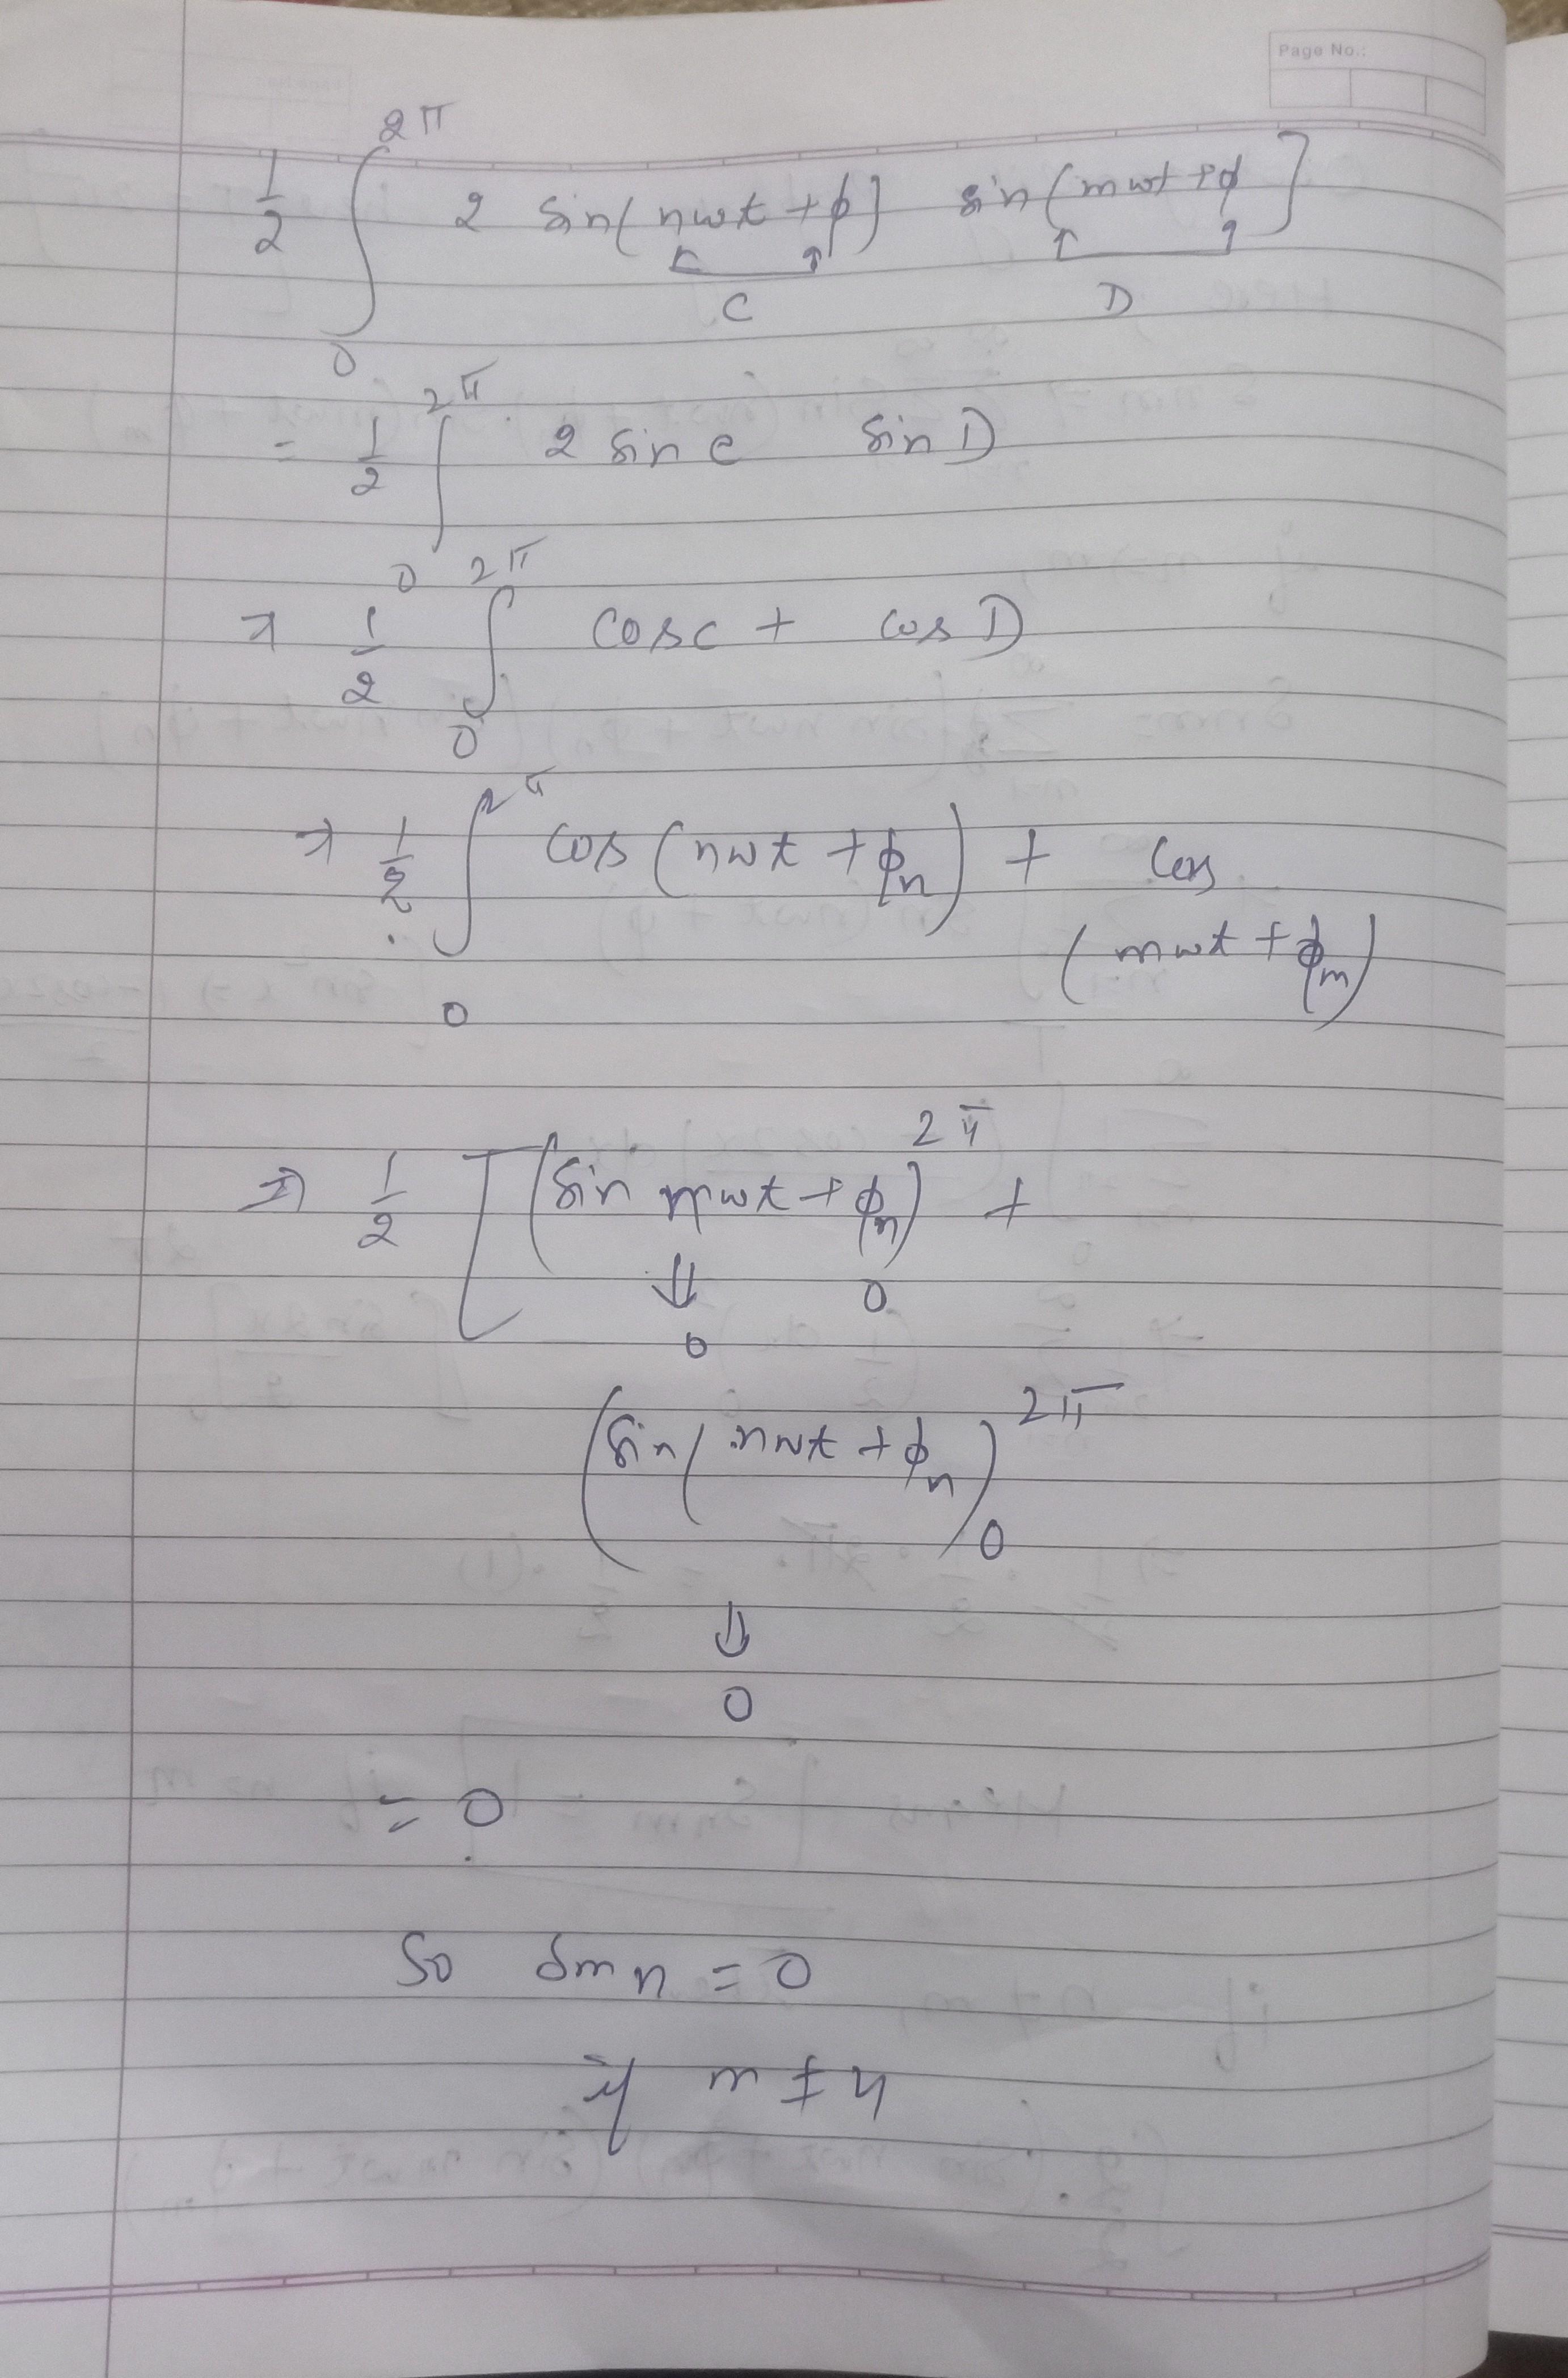 Page No.:
1/2 ∫₀^2π 2 sin(nωt + ϕ) sin(mωt + ϕ]
C D
= 1/2 ∫₀^2π 2 sin c sin D
⇒ 1/2 ∫₀^2π cos c + cos D
⇒ 1/2 ∫₀^2π cos (nωt + ϕn) + cos
(mωt + ϕm)
⇒ 1/2 [ (sin mωt + ϕn)₀^2π +
⇓
0
(sin( nωt + ϕn)₀^2π
⇓
0
= 0
So δmn = 0
if m ≠ n